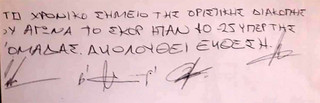 ΤΟ ΧΡΟΝΙΚΟ ΣΗΜΕΙΟ ΤΗΣ ΟΡΙΣΤΙΚΗΣ ΔΙΑΚΟΠΗΣ
ΟΥ ΑΓΩΝΑ ΤΟ ΣΚΟΡ ΗΤΑΝ 10-25 ΥΠΕΡ ΤΗΣ
ΟΜΑΔΑΣ. ΑΚΟΛΟΥΘΕΙ ΕΚΘΕΣΗ.